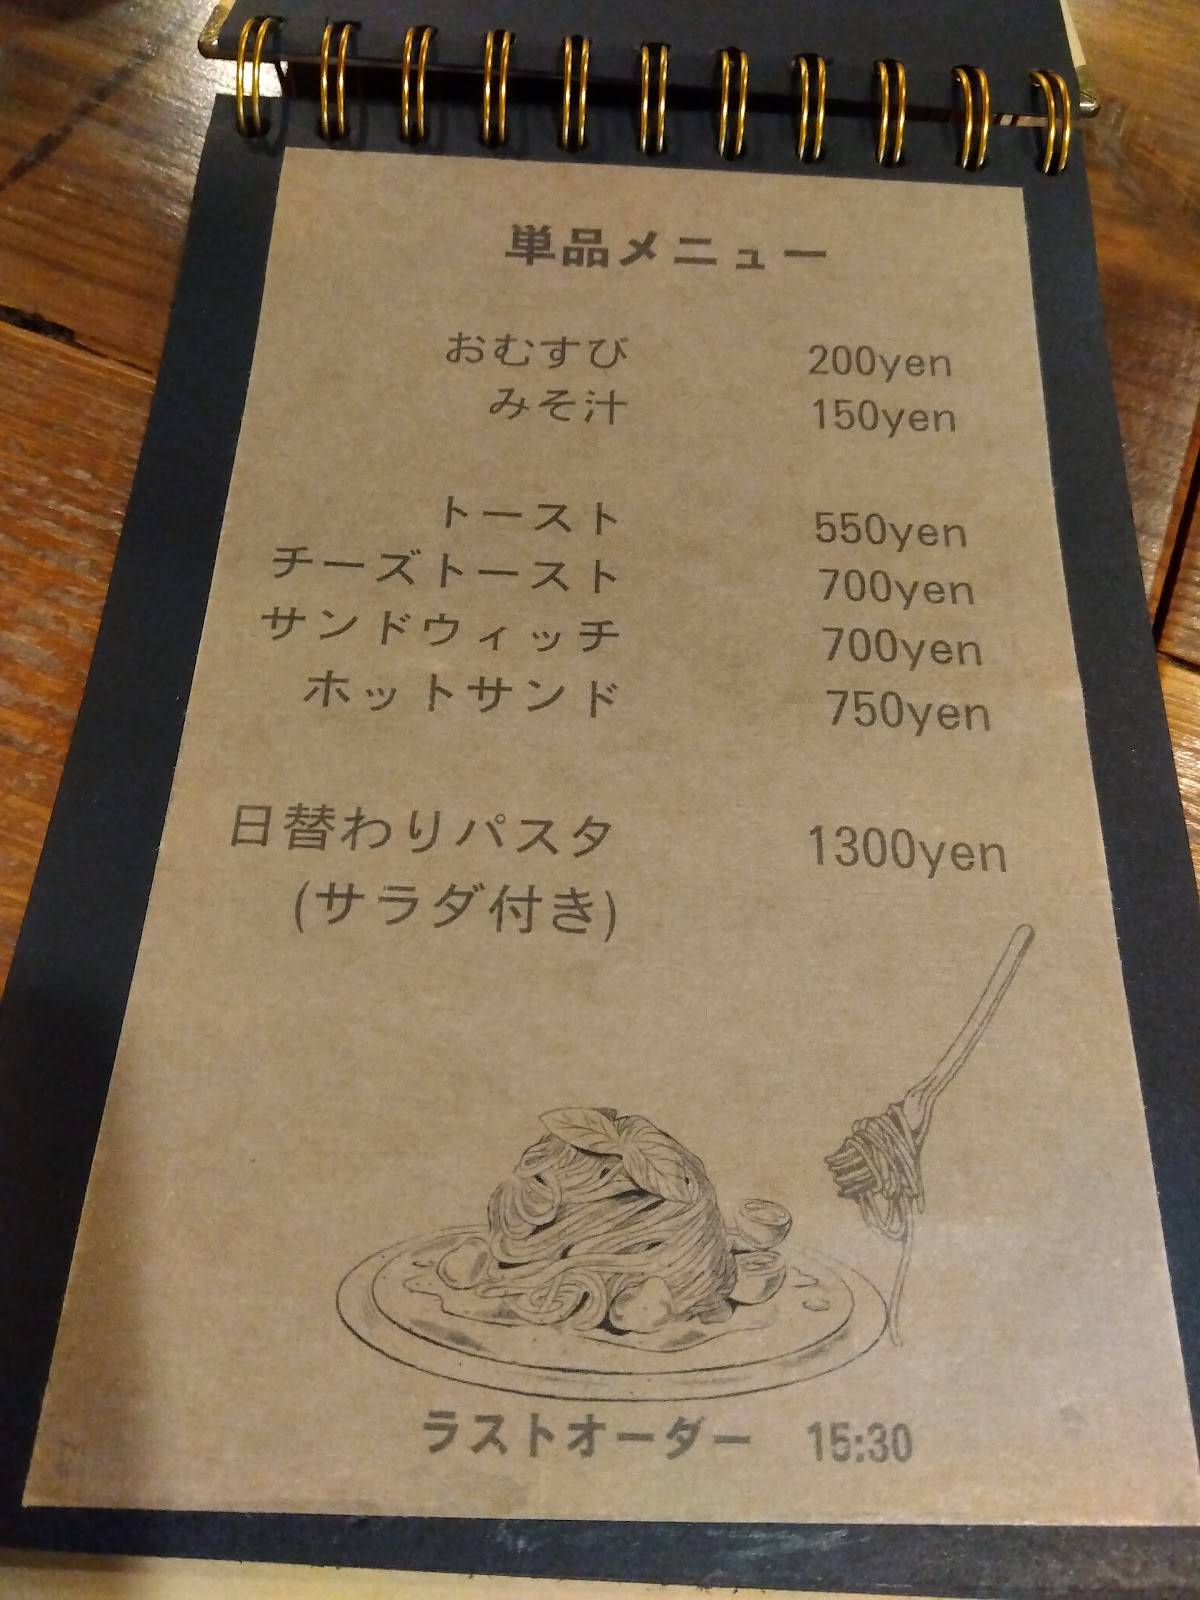 単品メニュー
おむすび 200yen
みそ汁 150yen
トースト 550yen
チーズトースト 700yen
サンドウィッチ 700yen
ホットサンド 750yen
日替わりパスタ 1300yen
(サラダ付き)
ラストオーダー 15:30